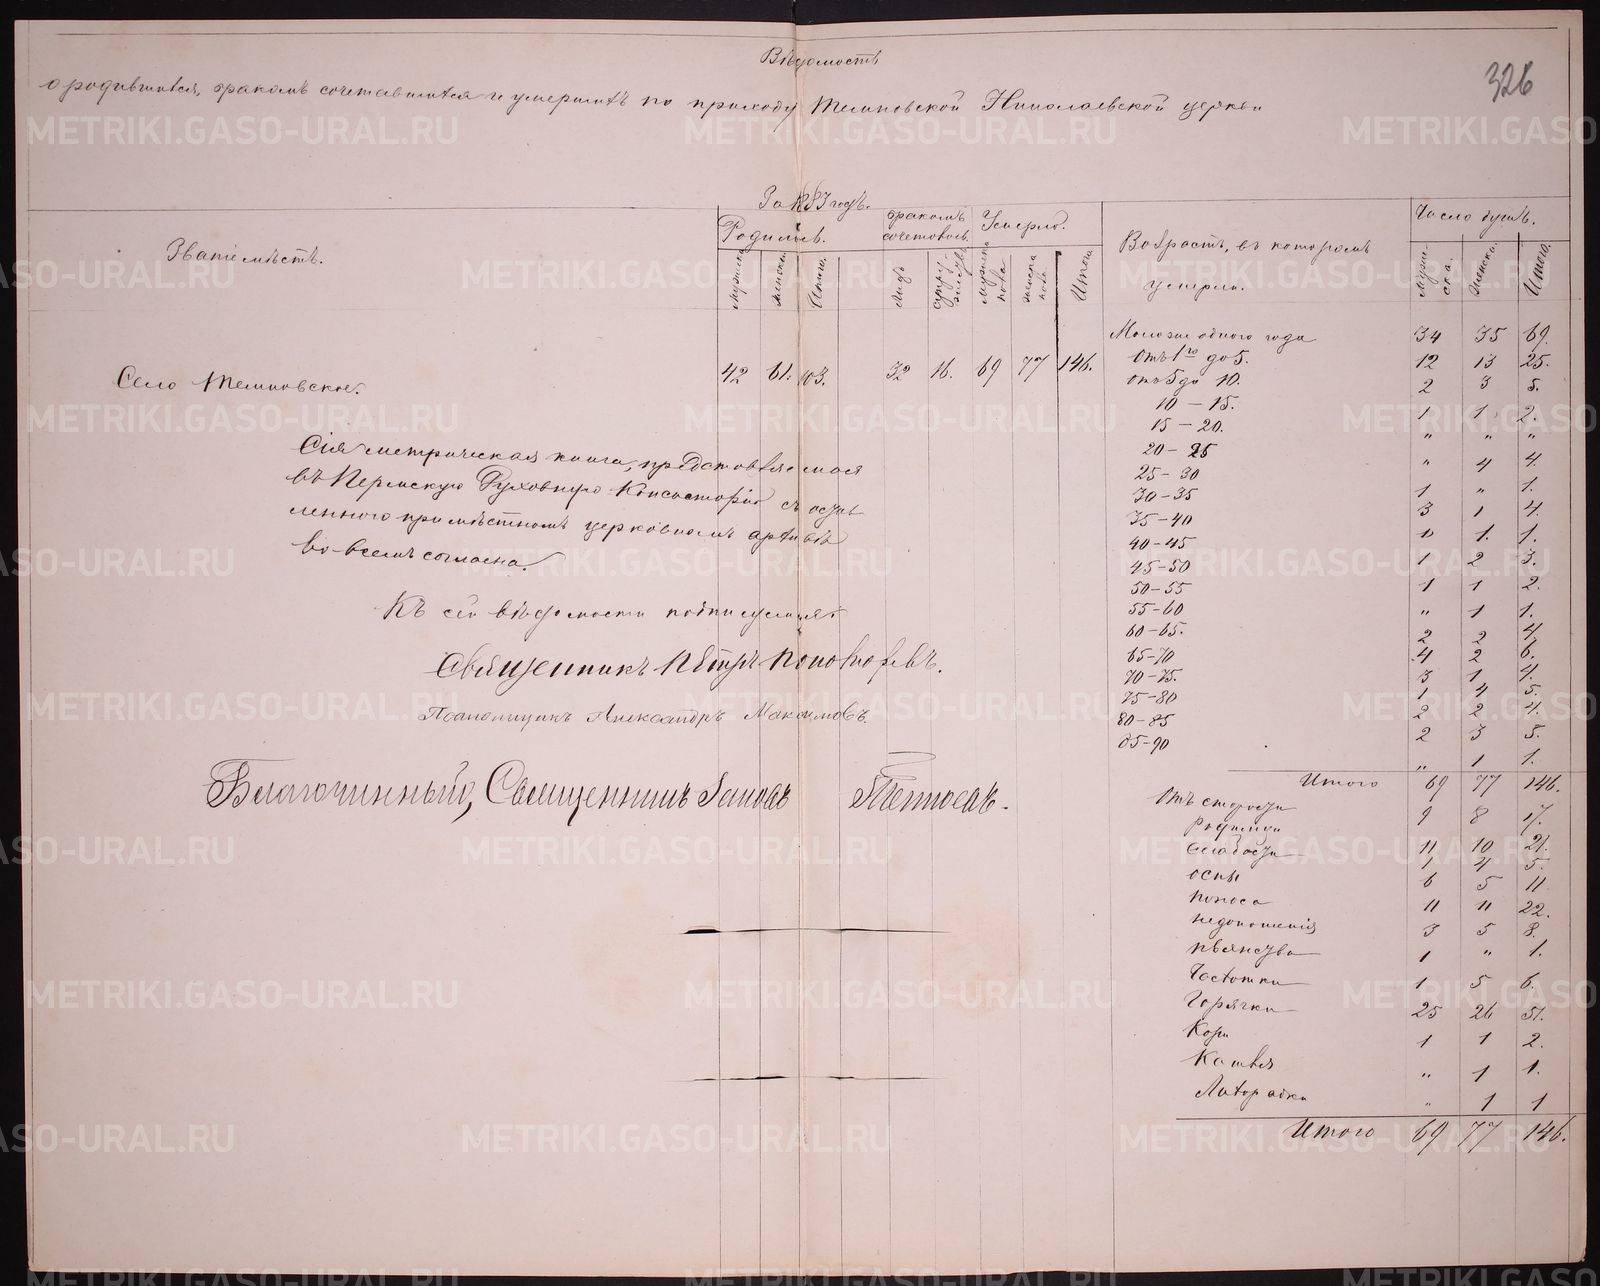 326
Вѣдомость
о родившихся, бракомъ сочетавшихся и умершихъ по приходу Николаевской церкви
За 1883 годъ.
Званіе мѣстъ.
Родилось.
бракомъ сочетовалось
Умерло.
мужска
женска
Итого.
Лицъ
супружествъ
мужска пола
женска пола
Итого
Возрастъ, въ которомъ умерли.
Число душъ.
мужска.
женска.
Итого.
Село
42 61. 103. 32 16. 69 77 146.
Моложе одного года 34 35 69.
отъ 1го до 5. 12 13 25.
отъ 5 до 10. 2 3 5.
10 – 15. 1 1 2.
15 – 20. " " "
20 – 25 " 4 4.
25 – 30 1 " 1.
30 – 35 3 1 4.
35 – 40 " 1. 1.
40 – 45 1 2 3.
45 – 50 1 1 2.
50 – 55 " 1 1.
55 – 60 2 2 4.
60 – 65. 4 2 6.
65 – 70 3 1 4.
70 – 75. 1 4 5.
75 – 80 2 2 4.
80 – 85 2 3 5.
85 – 90 " 1 1.
Итого 69 77 146.
Отъ старости 9 8 17.
Родимки 11 10 21.
слабости 1 4 5.
оспы 6 5 11
поноса 11 11 22.
недоношенія 3 5 8.
пьянства 1 " 1.
Чахотки 1 5 6.
Горячки 25 26 51.
Кори 1 1 2.
Кашля " 1 1.
Лихорадки " 1 1
Итого 69 77 146.
Сія метрическая книга, представляемая
въ Пермскую Духовную Консисторію съ остав
ленною при мѣстномъ церковномъ архивѣ
во всемъ согласна.
Къ сей вѣдомости подписуемся
Священникъ Петръ Пономаревъ.
Псаломщикъ Александръ Максимовъ.
Благочинный, Священникъ Іаковъ
METRIKI.GASO-URAL.RU